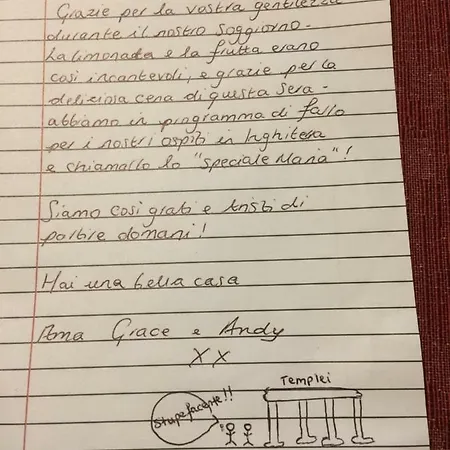 Grazie per la vostra gentilezza
durante il nostro soggiorno.
La limonada e la frutta erano
cosi incantevoli, e grazie per la
deliziosa cena di questa sera -
abbiamo in programma di farlo
per i nostri ospiti in Inghiterra
e chiamallo lo "speciale Maria"!
Siamo cosi grati e tristi di
partire domani!
Hai una bella casa
Ama Grace e Andy
XX
Stupefacente!!
Templei